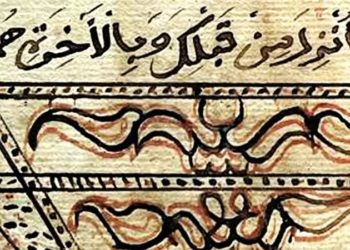 أُنْزِلَ مِنْ قَبْلِكَ وَبِالْأَخِرَةِ هُمْ